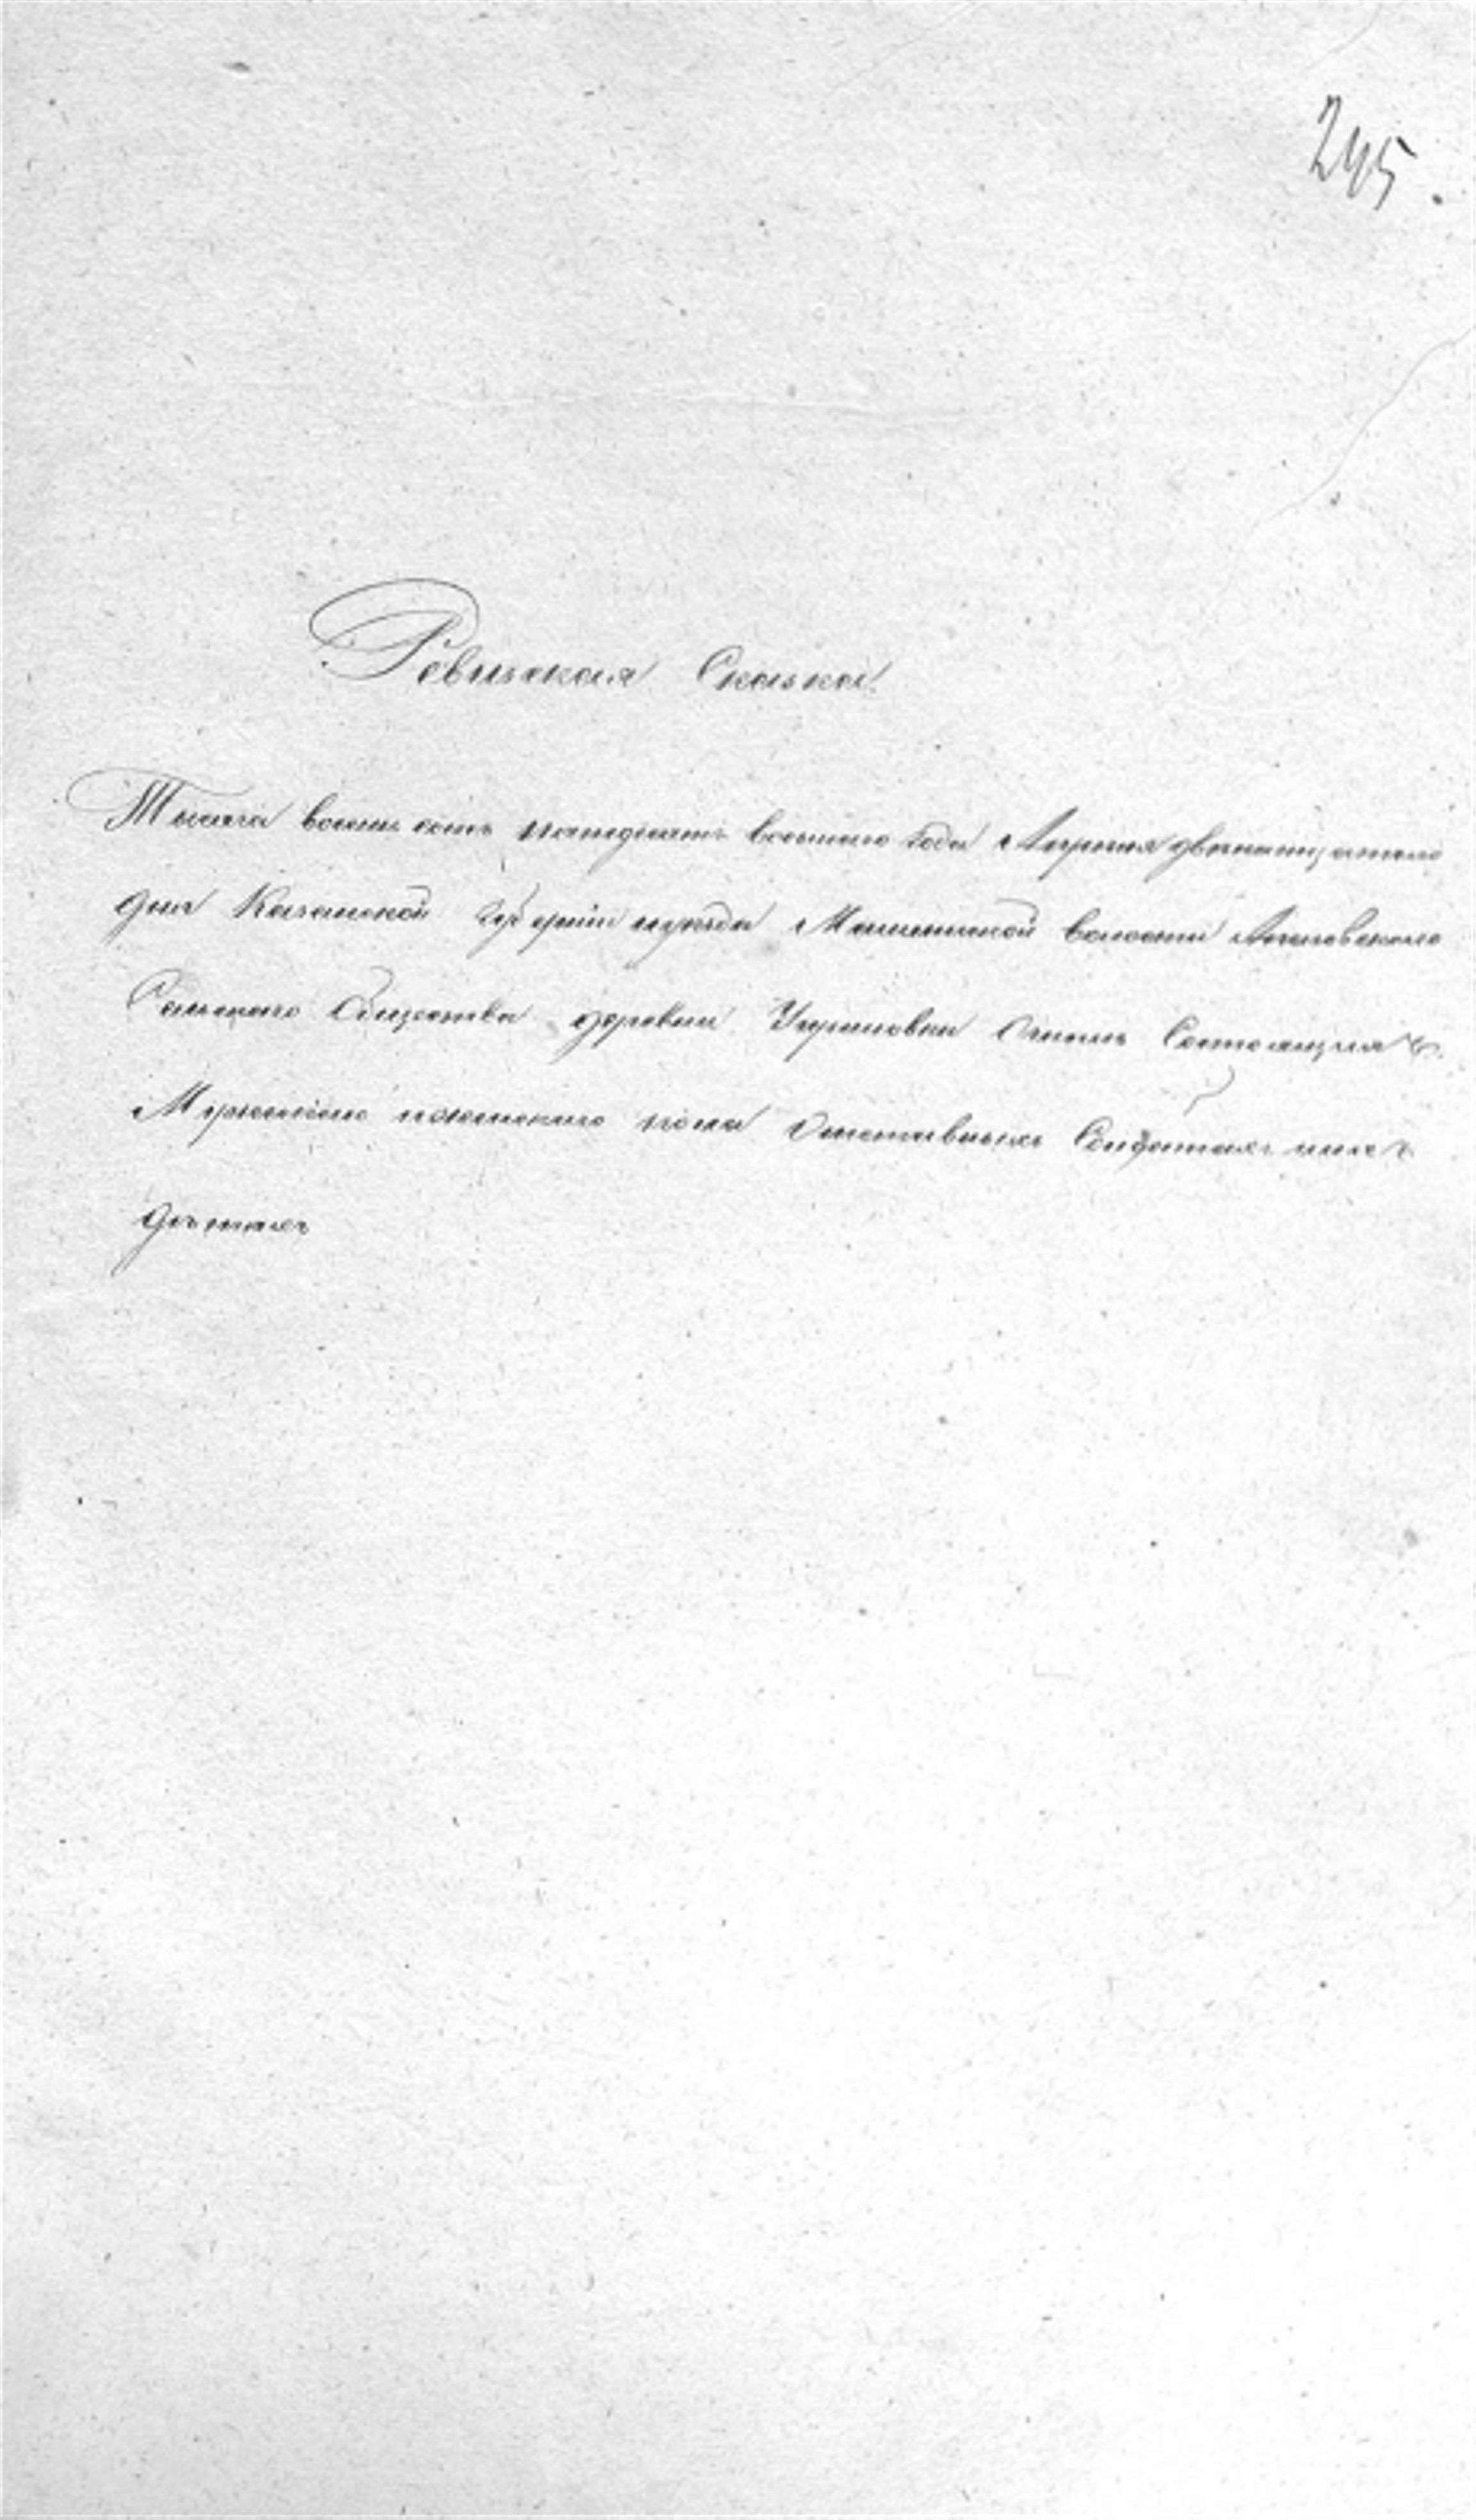 245.
Ревизская Сказка.
Тысяча восемь сотъ пятьдесятъ восьмаго года Апреля двенатцатаго
дня Казанской губернии и уезда волости
Сельскаго Общества деревни Состоящихъ
Мужескаго и женскаго пола Отставныхъ Солдатахъ и ихъ
детяхъ